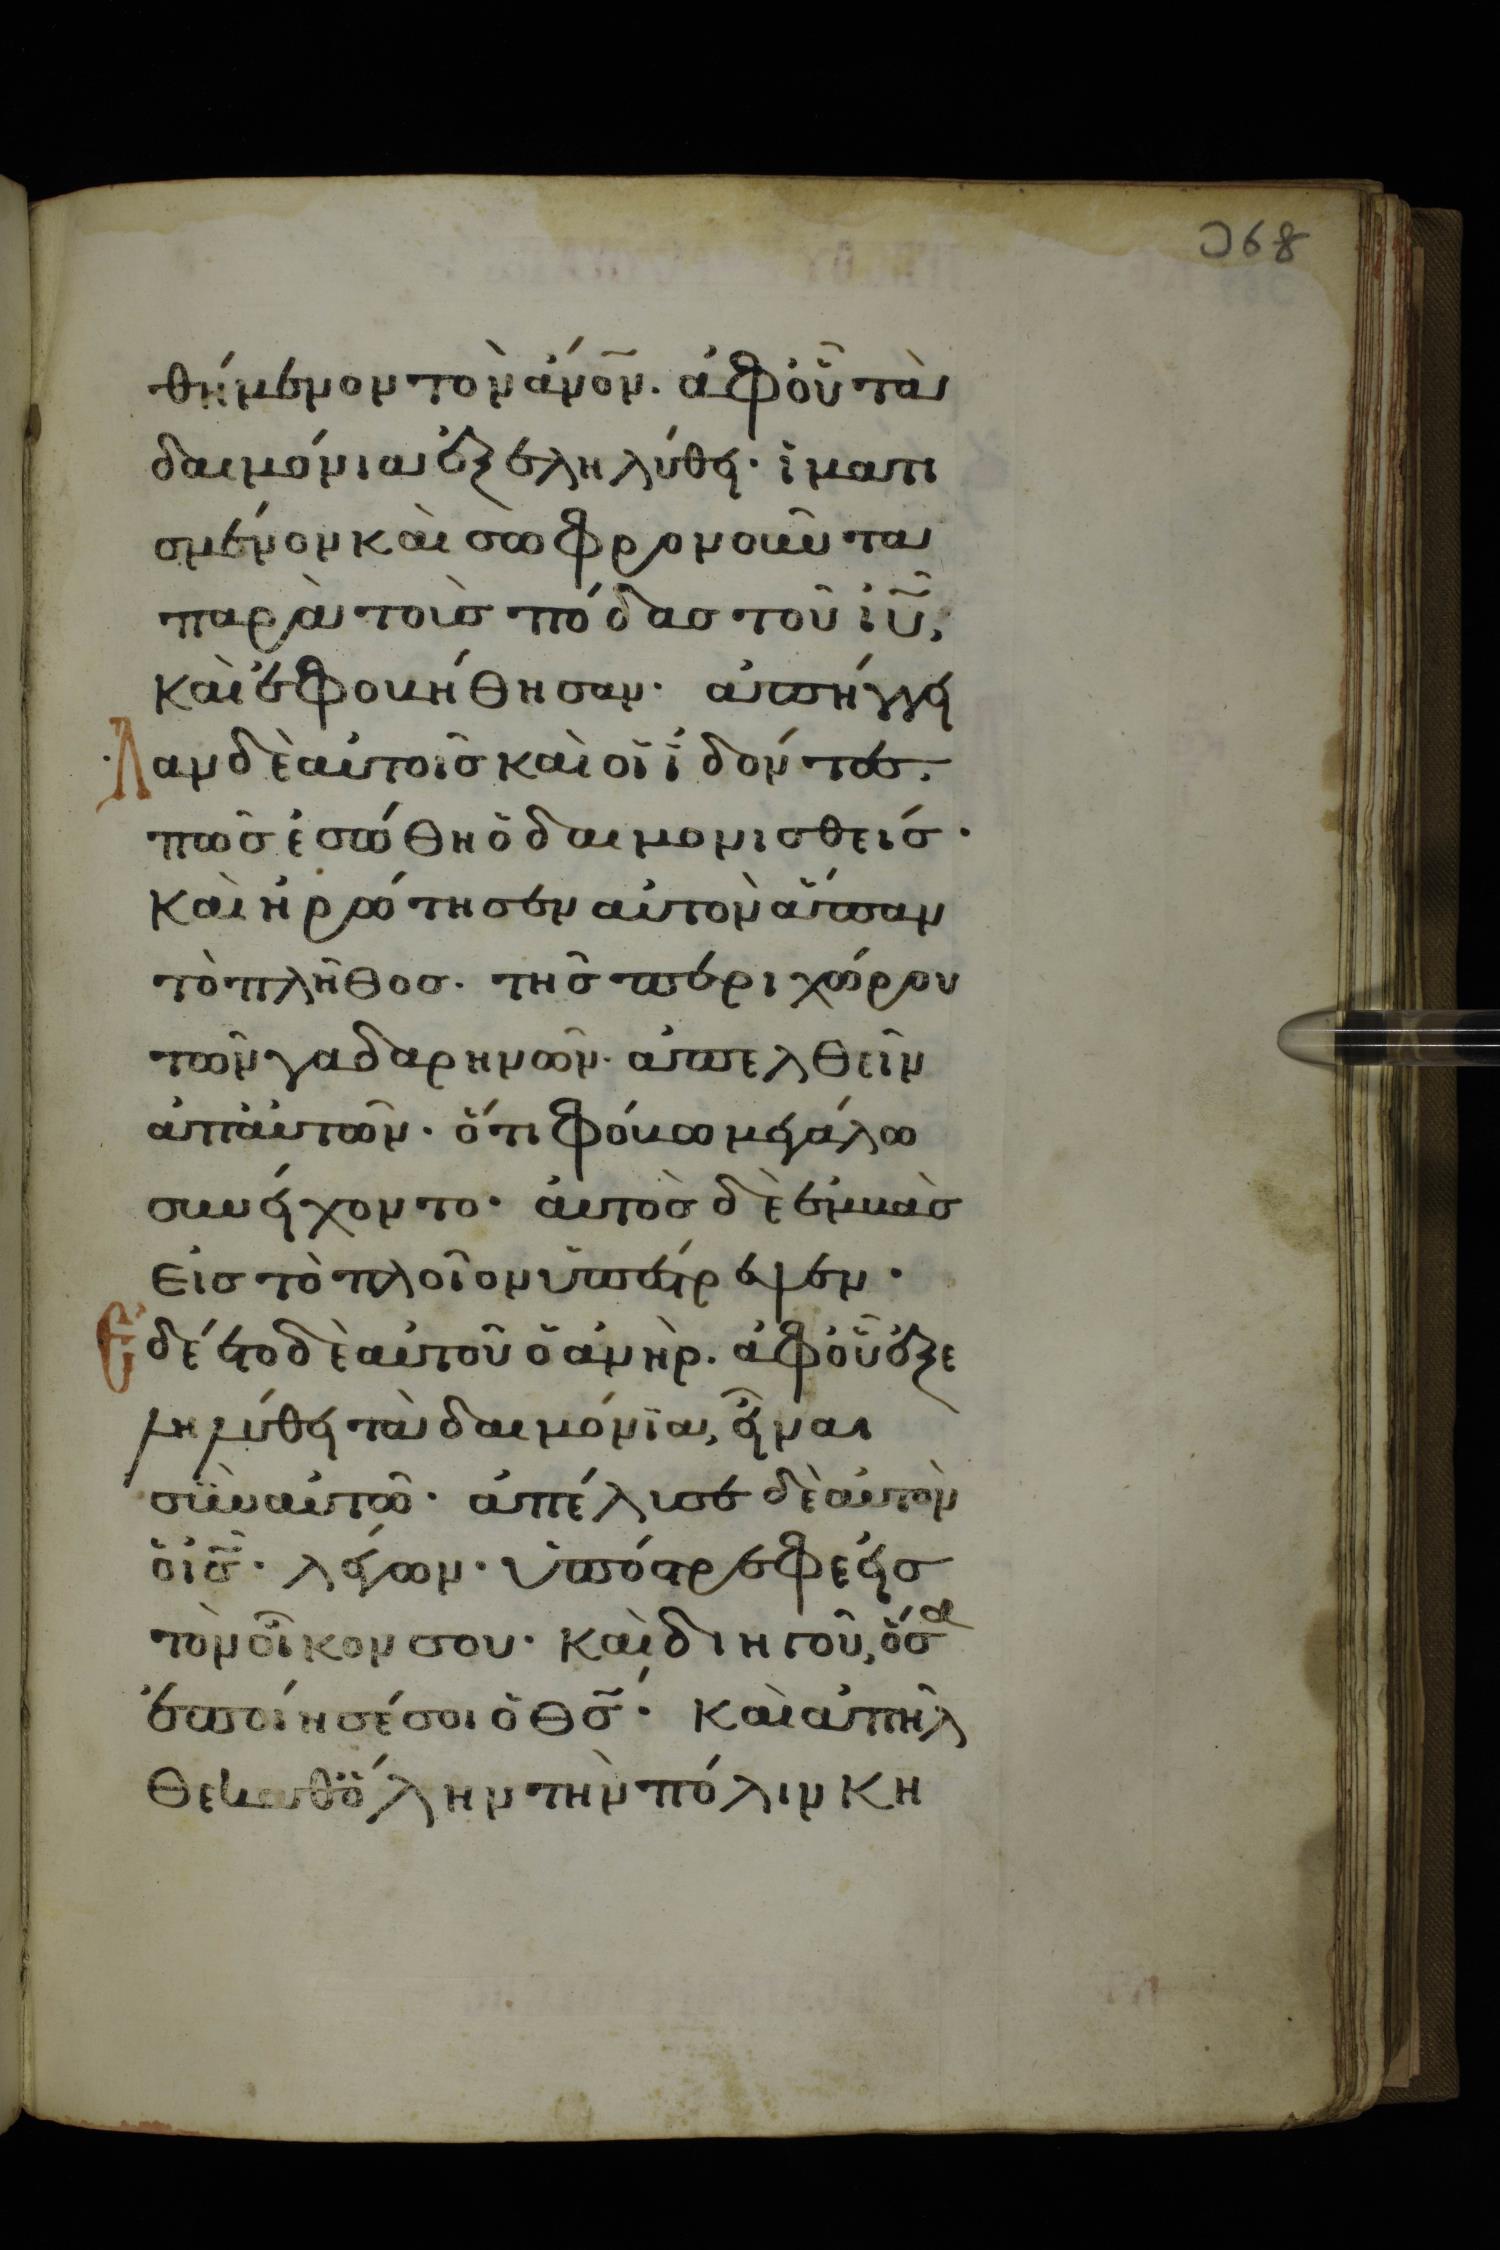 Ͻ68
θήμενον τὸν ἄνο̅ν. ἀφ' οὗ τὰ
δαιμόνια ἐξεληλύθει· ἱματι
σμένον καὶ σωφρονοῦντα
παρὰ τοὺς πόδας τοῦ ἰυ̅,
καὶ ἐφοβήθησαν· ἀπήγγει
λαν δὲ αὐτοῖς καὶ οἱ ἰδόντες.
πῶς ἐσώθη ὁ δαιμονισθείς·
καὶ ἠρώτησεν αὐτὸν ἅπαν
τὸ πλῆθος. τῆς περιχώρου
τῶν γαδαρηνῶν. ἀπελθεῖν
ἀπ' αὐτῶν. ὅτι φόβω μεγάλω
συνείχοντο· αὐτὸς δὲ ἐμβὰς
εἰς τὸ πλοῖον ὑπέστρεψεν·
Ἐδέετο δὲ αὐτοῦ ὁ ἀνὴρ. ἀφ' οὗ ἐξε
ληλύθει τὰ δαιμόνια, εἶναι
σὺν αὐτῶ· ἀπέλυσε δὲ αὐτὸν
ὁ ις̅· λέγων· ὑπόστρεφε εἰς
τὸν οἶκον σου· καὶ διηγοῦ, ὅσα
ἐποίησέ σοι ὁ θς̅· καὶ ἀπῆλ
θε καθ' ὅλην τὴν πόλιν κη